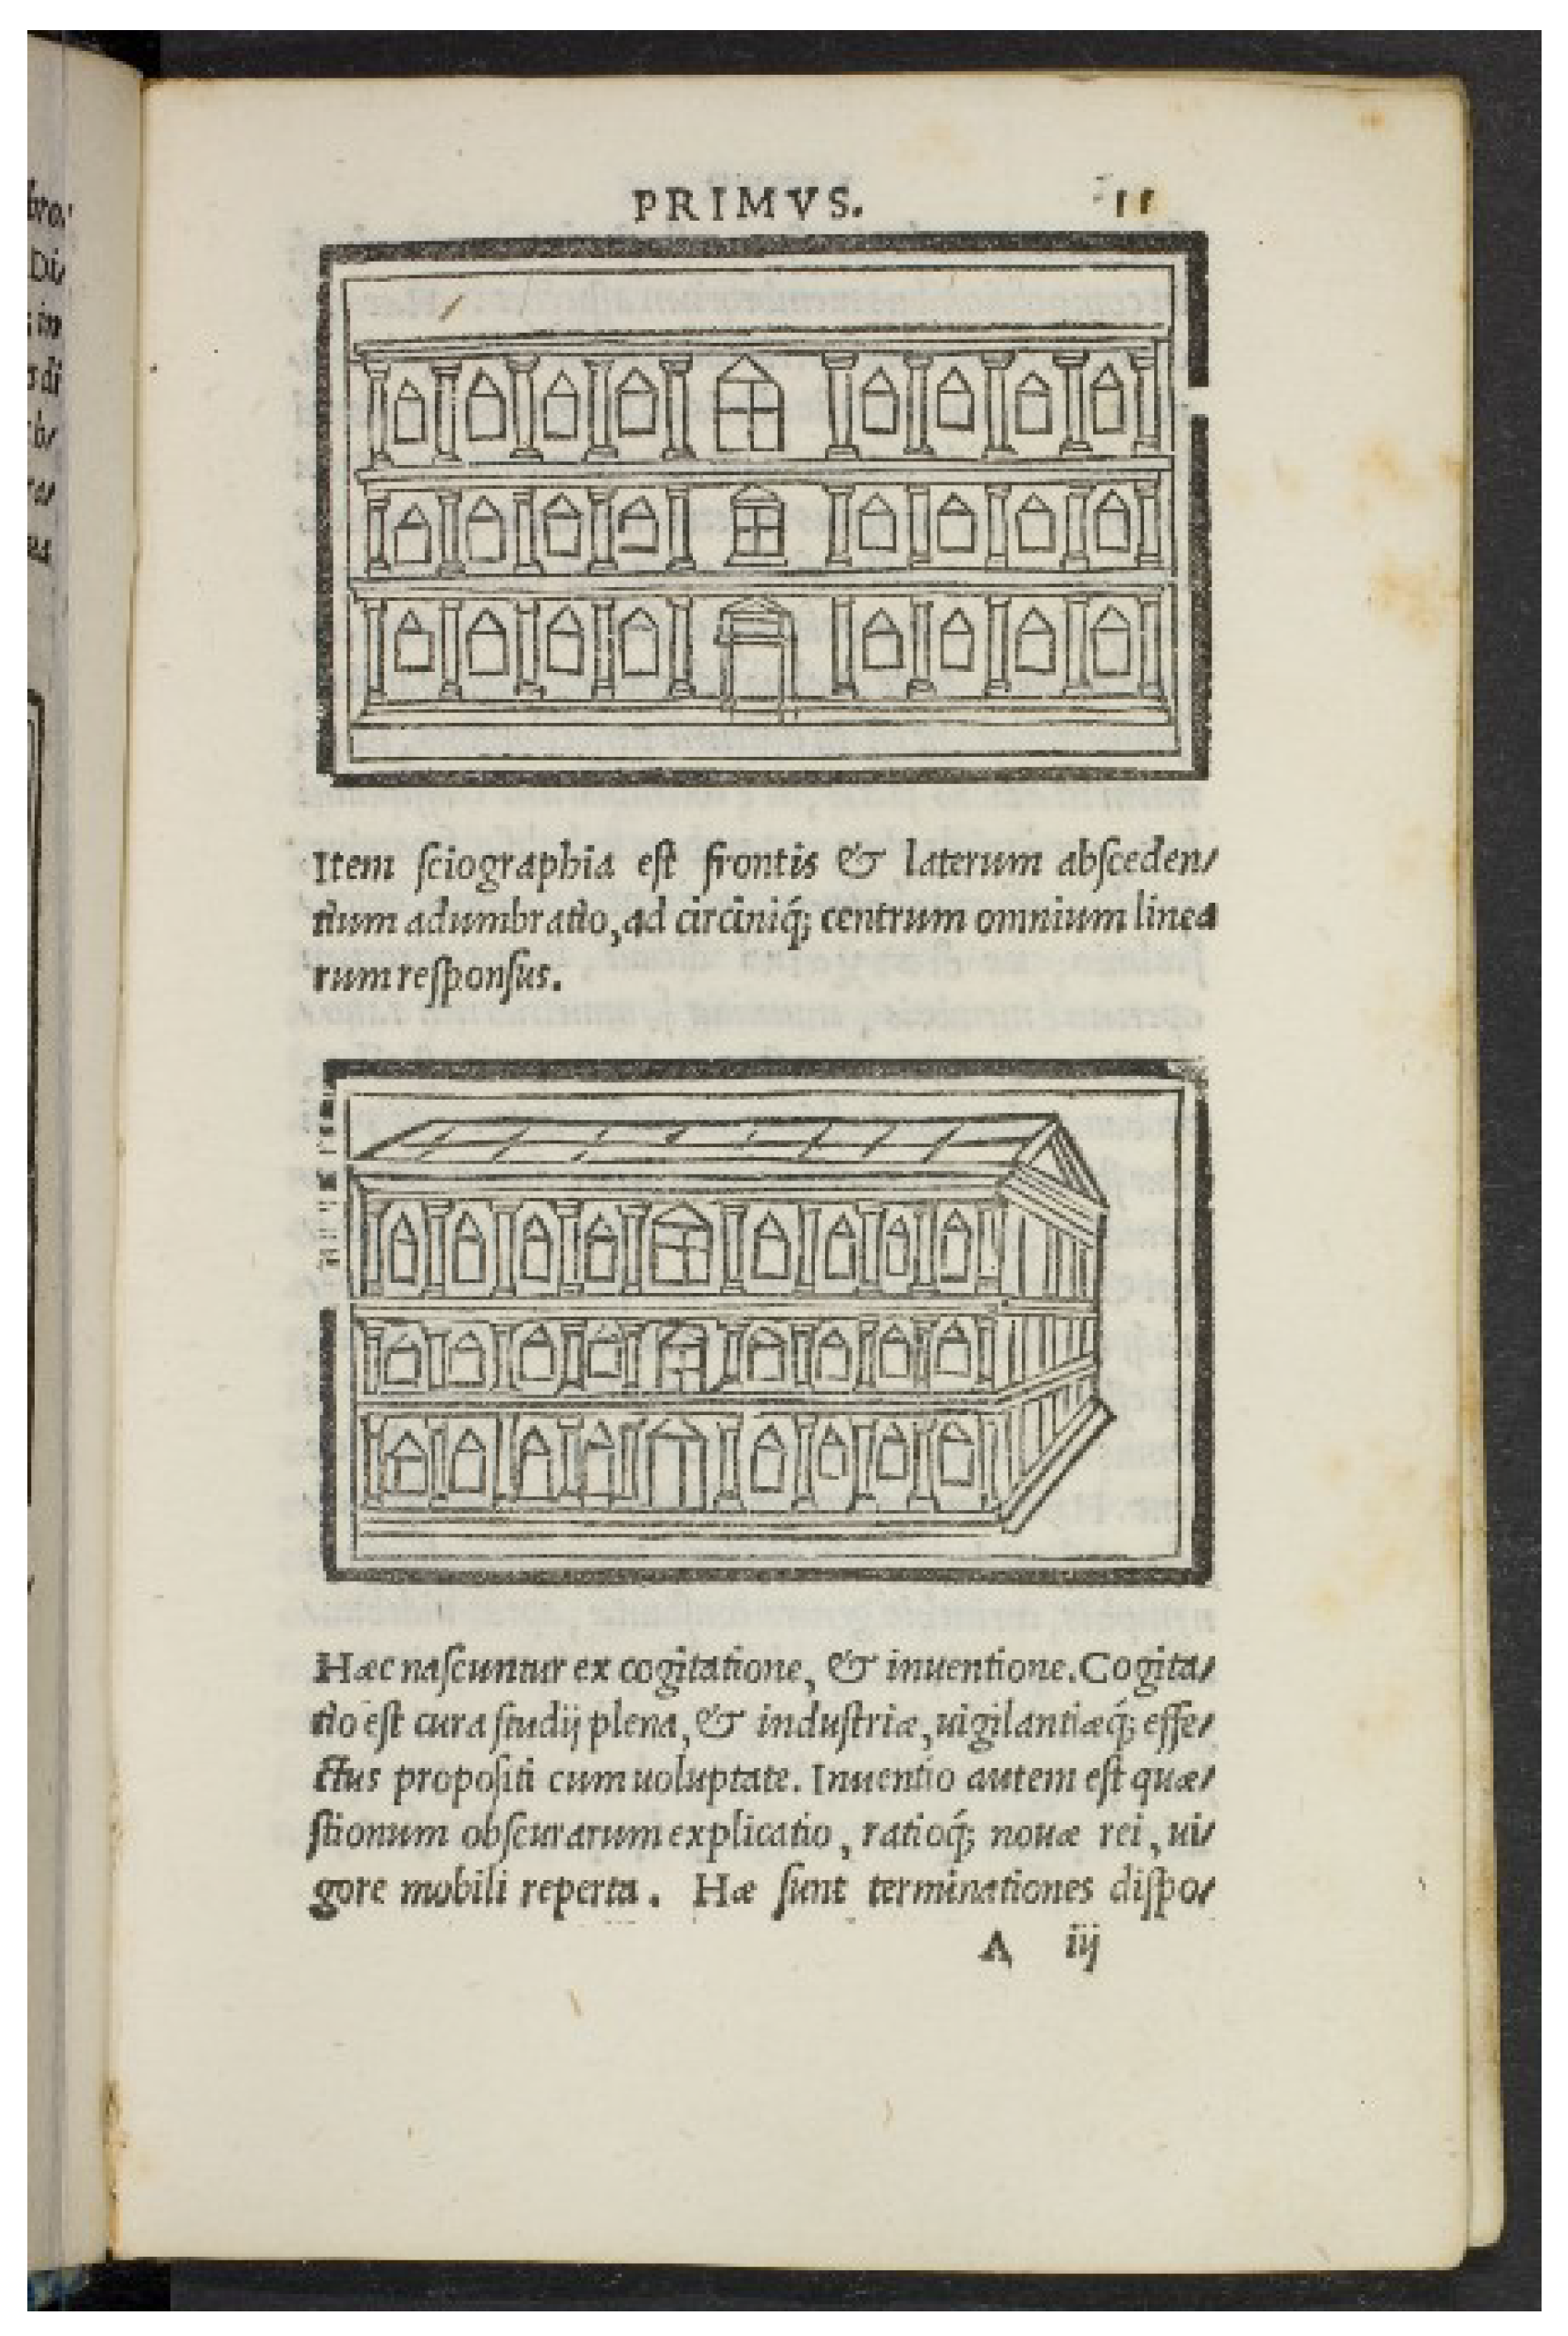 PRIMVS. 11
Item ſciographia eſt frontis & laterum abſceden/
tium adumbratio, ad circiniq́; centrum omnium linea
rum reſponſus.
Hæc naſcuntur ex cogitatione, & inuentione. Cogita/
tio eſt cura ſtudij plena, & induſtriæ, uigilantiæq́; effe/
ctus propoſiti cum uoluptate. Inuentio autem eſt quæ/
ſtionum obſcurarum explicatio, ratioq́; nouæ rei, ui/
gore mobili reperta. Hæ ſunt terminationes diſpo/
A iij